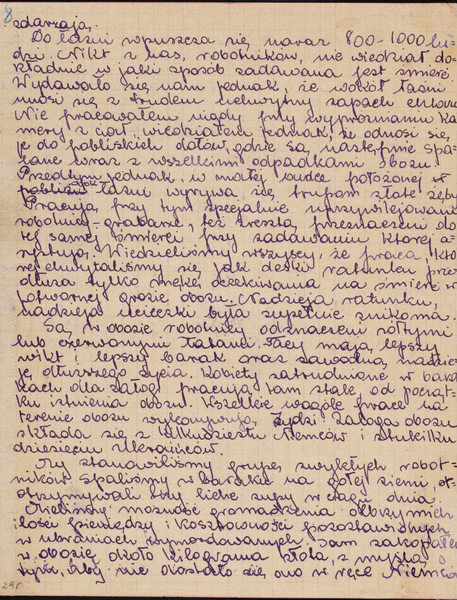 8
zdarzają.
Do łaźni wpuszcza się naraz 800-1000 lu-
dzi. Nikt z nas, robotników, nie wiedział do-
kładnie w jaki sposób zadawana jest śmierć.
Wydawało się nam jednak, że wokół łaźni
unosi się z trudem uchwytny zapach chloru.
Nie pracowałem nigdy przy wypróżnianiu ka-
mery z ciał, wiedziałem jednak, że odnosi się
je do pobliskich dołów, gdzie są następnie spa-
lane wraz z wszelkimi odpadkami obozu.
Przedtym jednak, w małej budce położonej w
pobliżu łaźni wyrywa się trupom złote zęby
Pracują przy tym specjalnie uprzywilejowani
robotnicy-grabarze, też zresztą przeznaczeni do
tej samej śmierci przy zadawaniu której a-
systują. Wiedzieliśmy wszyscy, że praca, któ-
rej chwytaliśmy się jak deski ratunku prze-
dłuża tylko mękę oczekiwania na śmierć w
potwornej grozie obozu. Nadzieja ratunku,
nadzieja ucieczki była zupełnie znikoma.
Są w obozie robotnicy odznaczeni żółtymi
lub czerwonymi łatami. Tacy mają lepszy
wikt i lepszy barak oraz
dłuższego życia. Kobiety zatrudnione w bara-
kach dla załogi pracują tam stale od począt-
ku istnienia obozu. Wszelkie wogóle prace na
terenie obozu wykonywują Żydzi. Załoga obozu
składa się z kilkudziestu Niemców i stukilku
dziesięciu Ukraińców.
My stanowiliśmy grupę zwykłych robot-
ników spaliśmy w baraku na gołej ziemi,
otrzymywali trzy liche zupy w ciągu dnia.
Mieliśmy możność gromadzenia olbrzymich
ilości pieniędzy i kosztowności pozostawionych
w ubraniach wymordowanych. Sam zakopałem
w obozie około kilograma złota, z myślą o
tym, aby nie dostało się ono w ręce Niemców